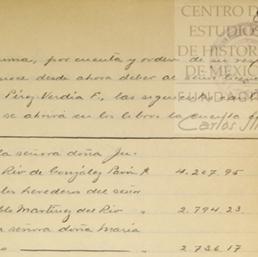 CENTRO DE
ESTUDIOS
DE HISTORIA
DE MÉXICO
FUNDACIÓN
Carlos
suma, por cuenta y orden de su rep
noce desde ahora deber al señor
Pérez Verdía F., las siguientes cant
se abrirá en los libros la cuenta
la señora doña Ju
Río de González Pavón $ 4.207.95
los herederos del señor
blo Martínez del Río " 2.794.23
la señora doña María
" 2.736.17